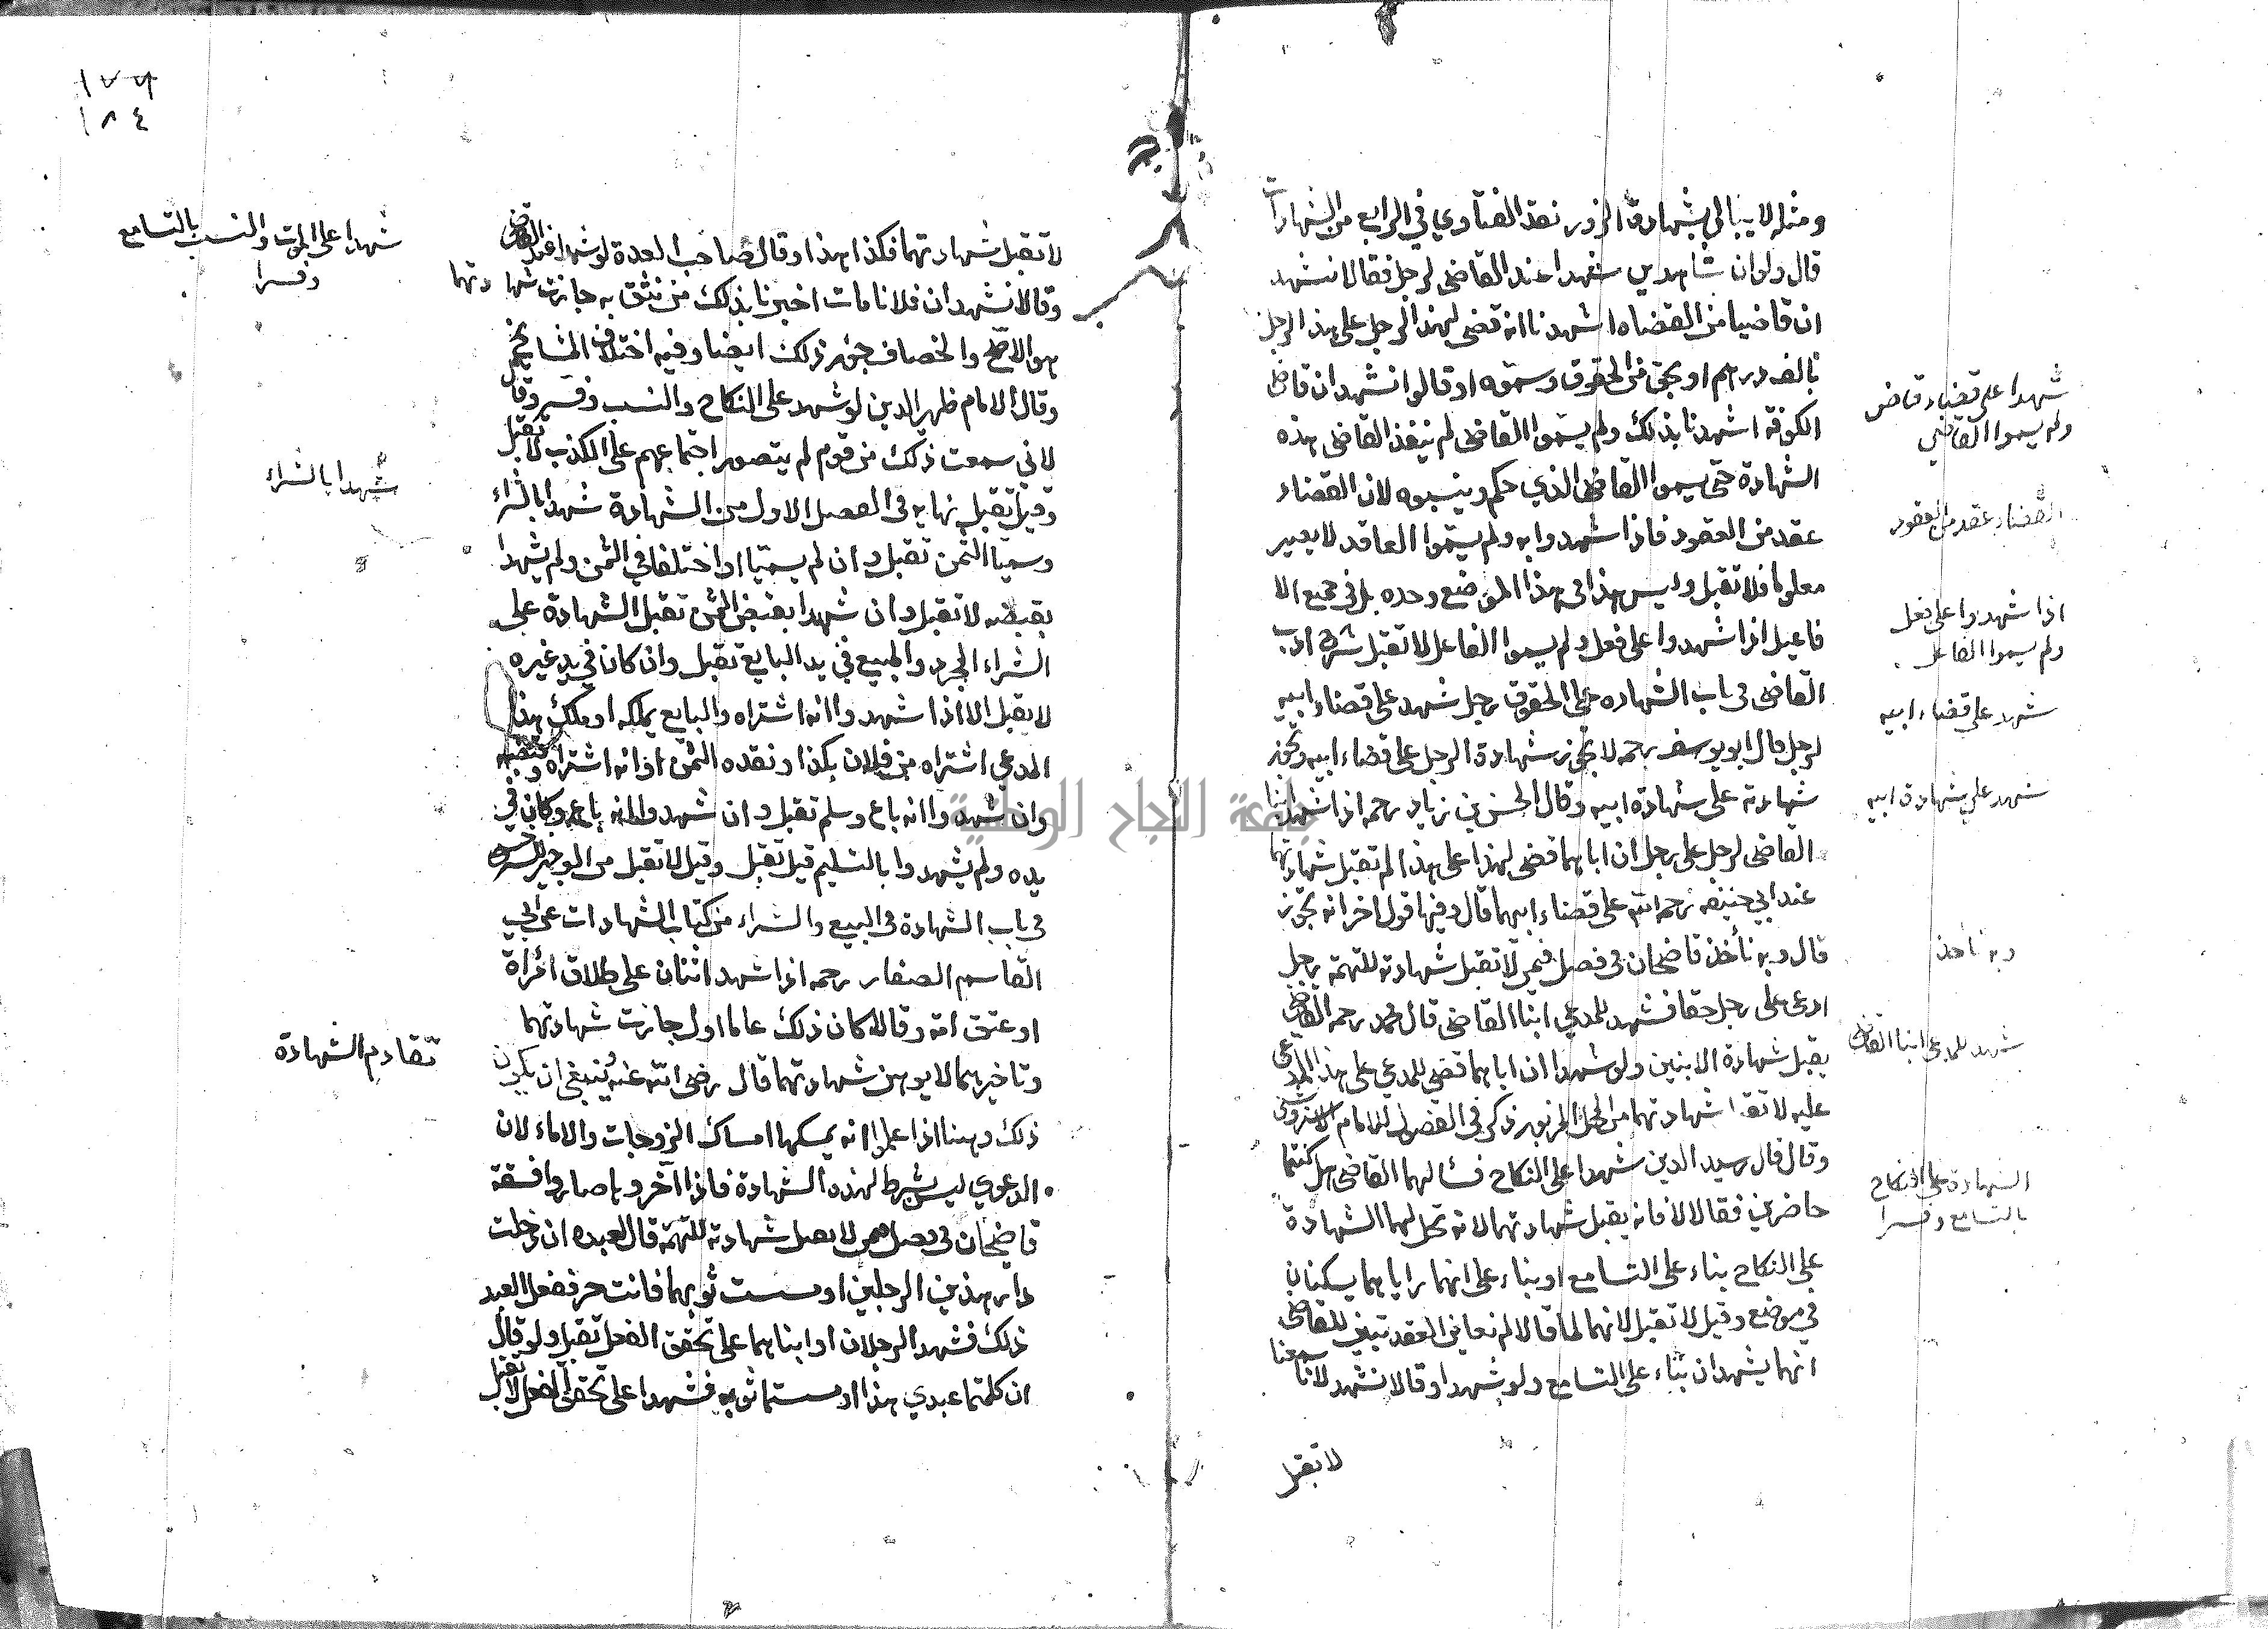 ومثله لا يبالي بشهادة الزور نقد الفتاوي في الرابع من الشهادات
قال ولو ان شاهدين شهدا عند القاضى لرجل فقالا نشهد
ان قاضيا من القضاه اشهدنا انه قضى لهذا الرجل على هذا الرجل
بالف درهم او بحق من الحقوق وسموه او قالوا نشهد ان قاضى
الكوفة اشهدنا بذلك ولم يسموا القاضى لم ينفذ القاضى هذه
الشهادة حتى يسموا القاضى الذي حكم وينسبوه لان القضاء
عقد من العقود فاذا شهدوا به ولم يسموا العاقد لا يصير
معلوما فلا تقبل وليس هذا في هذا الموضع وحده بل في جميع الا
فاعيل اذا شهدوا على فعل ولم يسموا الفاعل لا تقبل شرح ادب
القاضى في باب الشهاده على الحقوق رجل شهد على قضاء ابيه
لرجل قال ابو يوسف رحمه لا تجوز شهادة الرجل على قضاء ابيه وتجوز
شهادته على شهادة ابيه وقال الحسن بن زياد رحمه اذا شهد ابنا
القاضى لرجل على رجل ان اباهما قضى لهذا على هذا لم تقبل شهادتهما
عند ابي حنيفه رحمه الله على قضاء ابيهما قال وفيها قول اخر انه تجوز
قال وبه نأخذ قاضيخان في فصل فيمن لا تقبل شهادته للتهمة رجل
ادعى على رجل حقا فشهد للمدعي ابنا القاضى قال محمد رحمه القاضى
يقبل شهادة الابنين ولو شهدا ان اباهما قضى للمدعي على هذا المدعى
عليه لا تقبل شهادتهما من المحل المزبور ذكر في الفصول للامام الاستروشني
وقال قال رسيد الدين شهدا على النكاح فسألهما القاضى هل كنتما
حاضرين فقالا لا فانه يقبل شهادتهما لانه تحل لهما الشهادة
على النكاح بناء على التسامع او بناء على انهما راياهما يسكنان
في موضع وقيل لا تقبل لانهما لما قالا لم نعاين العقد تبين للقاضى
انهما يشهدان بناء على التسامع ولو شهدا وقالا نشهد لانا سمعنا
لا تقبل
شهدا على قضاء قاض
ولم يسموا القاضي
القضاء عقد من العقود
اذا شهدوا على فعل
ولم يسموا الفاعل
شهد على قضاء ابيه
شهد على شهادة ابيه
وبه نأخذ
شهد للمدعي ابنا القاضى
الشهادة على النكاح
بالتسامع وفسرا
١٧٦
١٨٤
لا تقبل شهادتهما فكذا هذا وقال صاحب العدة لو شهدا عند القاضى
وقالا نشهد ان فلانا مات اخبرنا بذلك من نثق به جازت شهادتهما
هو الاصح والخصاف جوز ذلك ايضا وفيه اختلاف المشايخ
وقال الامام ظهير الدين لو شهد على النكاح والنسب وفسر وقال
لاني سمعت ذلك من قوم لم يتصور اجتماعهم على الكذب لا تقبل
وقيل تقبل نهايه في الفصل الاول من الشهادة شهدا بالشراء
وسميا الثمن تقبل وان لم يسميا او اختلفا في الثمن ولم يشهدا
بقبضه لا تقبل وان شهدا بقبض الثمن تقبل الشهادة على
الشراء المجرد والمبيع في يد البايع تقبل وان كان في يد غيره
لا يقبل الا اذا شهدوا انه اشتراه والبايع يملكه او ملك هذا
المدعي اشتراه من فلان بكذا ونقده الثمن اذا انه اشتراه وقبضه
وان شهدوا انه باع وسلم تقبل وان شهدوا انه باع وكان في
يده ولم يشهدوا بالتسليم قيل تقبل وقيل لا تقبل من الوجيز للسرخسي
في باب الشهادة في البيع والشراء من كتاب الشهادات عن ابي
القاسم الصفار رحمه اذا شهد اثنان على طلاق امرأة
او عتق امة وقالا كان ذلك عاما اول جازت شهادتهما
وتاخيرهما لا يوهن شهادتهما قال رضى الله عنه ينبغى ان يكون
ذلك وهنا اذا علموا انه يمسكها امساك الزوجات والاماء لان
الدعوي ليس بشرط لهذه الشهادة فاذا اخروها صاروا فسقة
قاضيخان في فصل فيمن لا يقبل شهادته للتهمة قال لعبده ان دخلت
دار هذين الرجلين او مسست ثوبهما فانت حر ففعل العبد
ذلك فشهد الرجلان او ابناهما على تحقق الفعل تقبل ولو قال
ان كلمتما عبدي هذا او مسستما ثوبه فشهدا على تحقق الفعل لا تقبل
شهدا على الموت والنسب بالتسامع
وفسرا
شهدا بالشراء
تقادم الشهادة
جامعة النجاح الوطنية